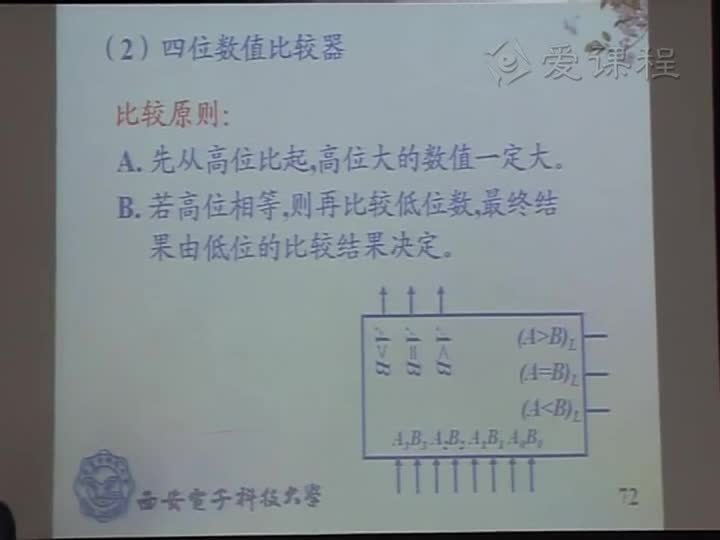 (2) 四位数值比较器
爱课程
比较原则:
A. 先从高位比起,高位大的数值一定大。
B. 若高位相等,则再比较低位数,最终结
果由低位的比较结果决定。
(A>B)L
(A=B)L
(A<B)L
A3B3 A2B2 A1B1 A0B0
西安电子科技大学
72